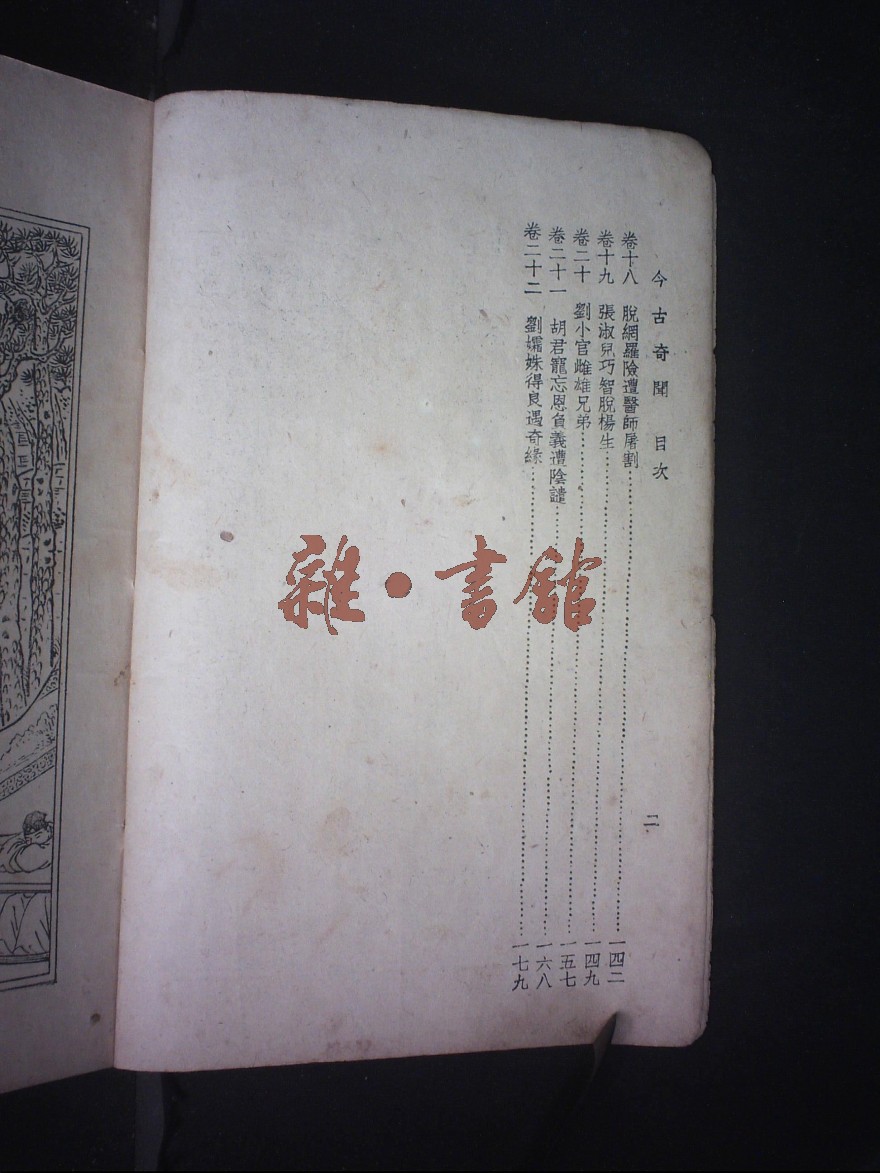 今古奇聞 目次 二
卷十八 脫網羅險遭醫師屠割 一四二
卷十九 張淑兒巧智脫楊生 一四九
卷二十 劉小官雌雄兄弟 一五七
卷二十一 胡君寵忘恩負義遭陰譴 一六八
卷二十二 劉孀姝得良遇奇緣 一七九
雜·書館